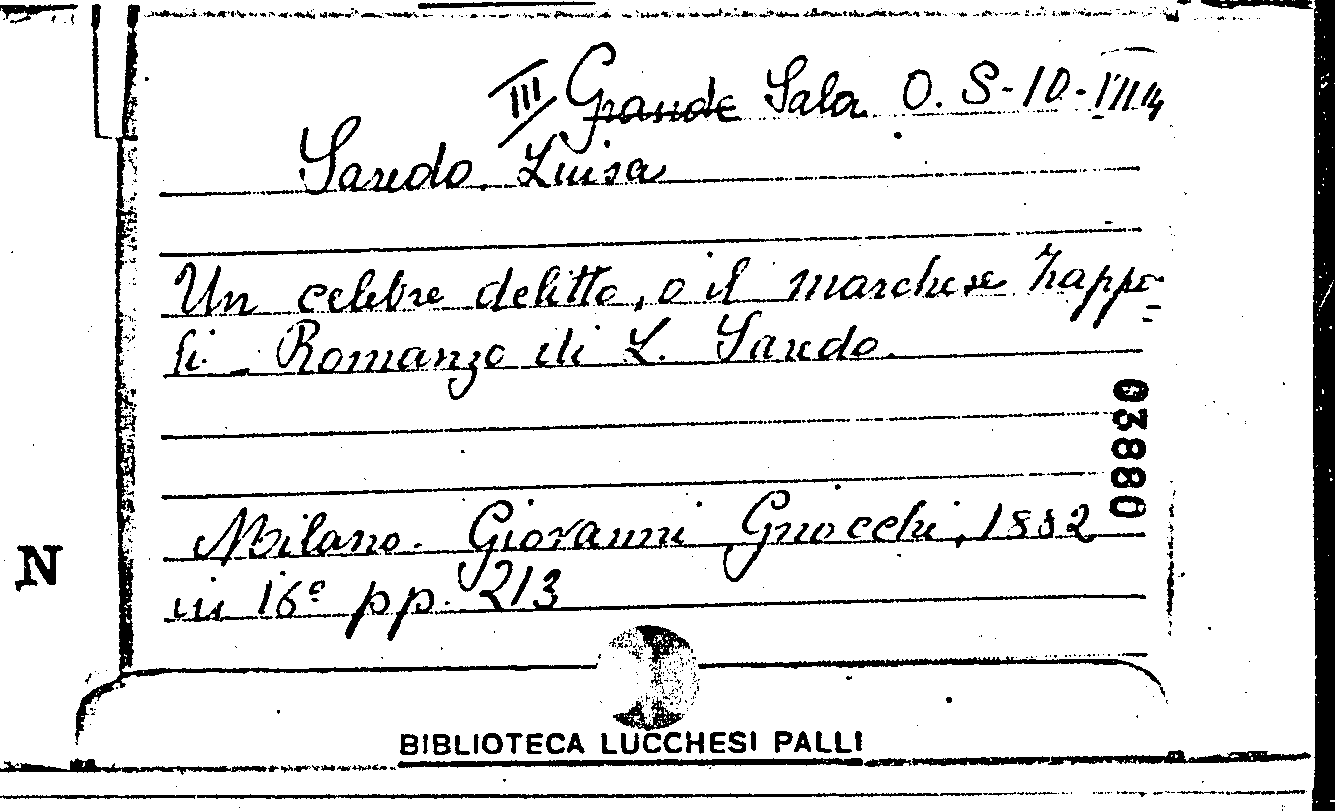 III Grande Sala O. S-10-VIII 4
Saredo Luisa
Un celebre delitto, o il marchese Trappo-
li - Romanzo di L. Saredo.
03880
Milano. Giovanni Gnocchi, 1882
in 16º pp. 213
N
BIBLIOTECA LUCCHESI PALLI